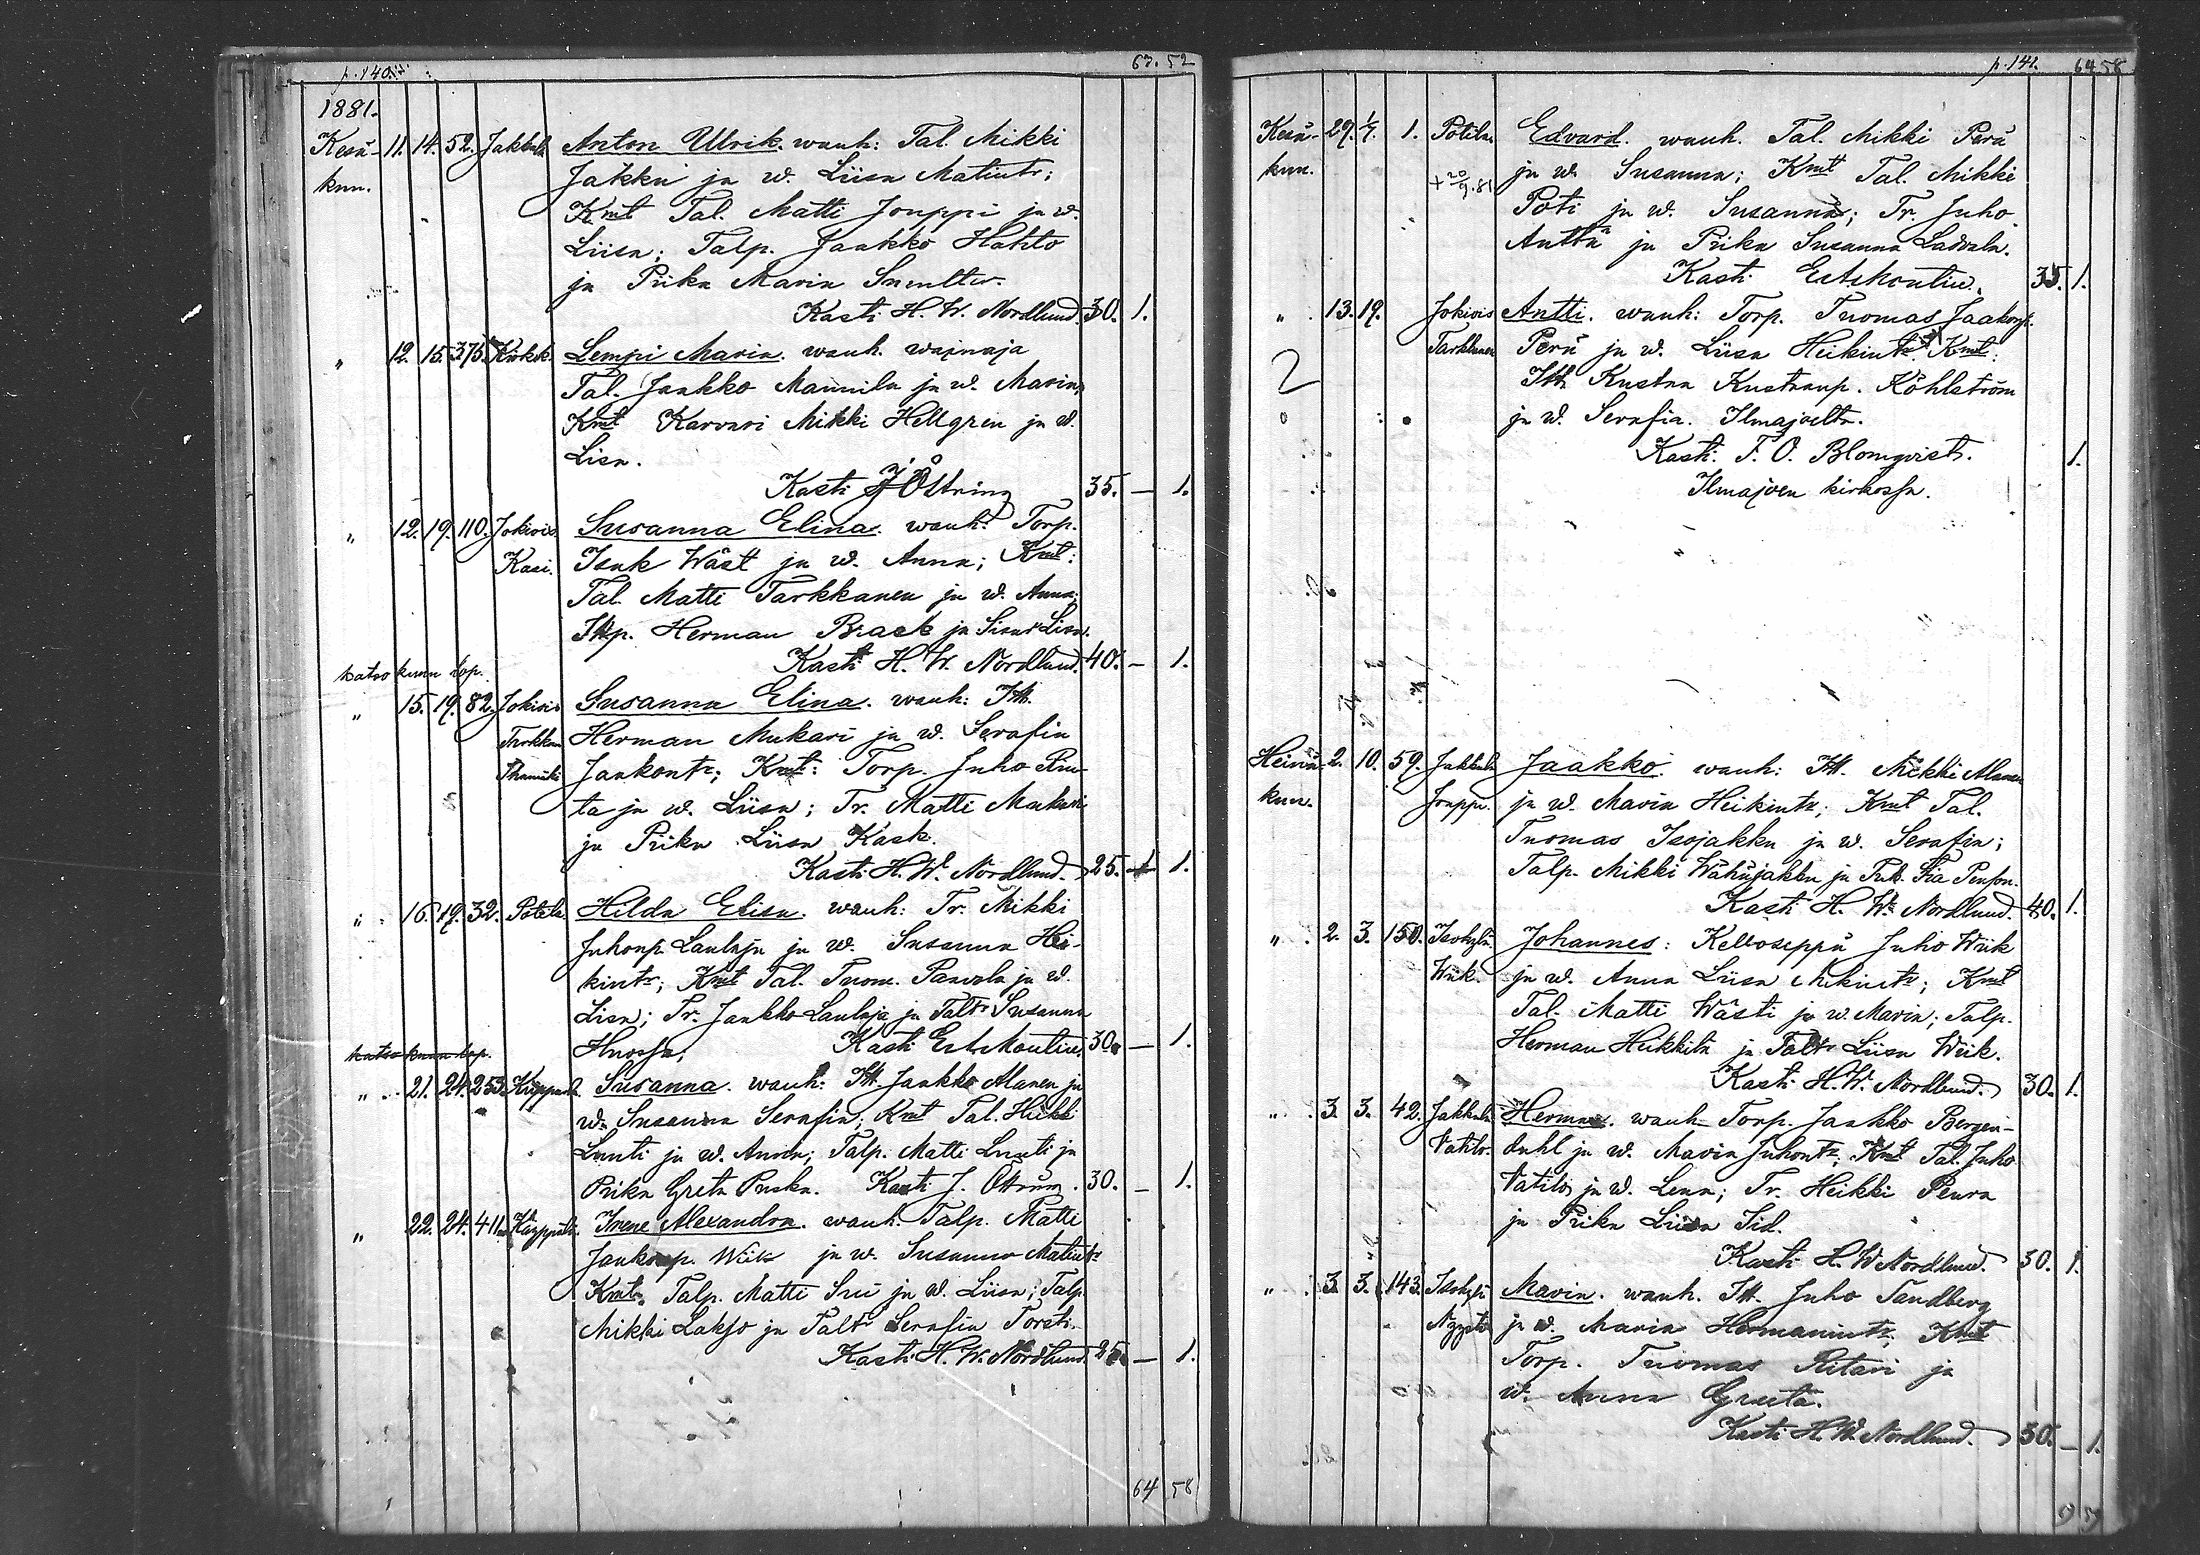 p. 140. 63. 52
1881.
Kesä- 11. 14. 52. Jakkula Anton Ullrik. wanh: Tal. Mikki
kuu. Jakku ja w. Liisa Matintr;
Kmt Tal. Matti Jouppi ja w.
Liisa; Talp. Jaakko Hahto
ja Piika Maria
Kasti H. W. Nordlund. 30. 1.
" 12. 15. 375. Lempi Maria. wanh. wainaja
Tal. Jaakko Mannila ja w. Maria;
Kmt Karvari Mikki Hellgren ja w.
Lisa.
Kasti J Östring 35. — 1.
" 12. 19. 110. Jokivis Susanna Elina. wanh: Torp.
Kasi. Isak Wäst ja w. Anna; Kmt:
Tal. Matti Tarkkanen ja w. Anna;
Itkp. Herman Brask ja Sisar Lisa.
Kasti H. W. Nordlund. 40. — 1.
katso kuun lop.
" 15. 19. 82. Jokivis Susanna Elina. wanh: Itk.
Herman Mukari ja w. Serafia
Jaakontr; Kmt: Torp. Juho Rin-
ta ja w. Liisa; Tr. Matti Mukari
ja Piika Liisa Kask.
Kasti H. W. Nordlund. 25. — 1.
" 16. 19. 32. Potila Hilda Elisa. wanh: Tr. Mikki
Juhonp. Laulaja ja w. Susanna Hei-
kintr; Kmt Tal. Tuom. Panula ja w.
Lisa; Tr. Jaakko Laulaja ja Taltr Susanna
katso kuun lop. Kasti 30. — 1.
" 21. 24. 253. Susanna. wanh: Itk. Jaakko Alanen ja
w. Susanna Serafia; Kmt Tal. Heikki
Luuti ja w. Anna; Talp. Matti Luuti ja
Piika Greta Puska. Kasti J. Östring. 30. — 1.
" 22. 24. 411. Käyppälä. Irene Alexandra. wanh: Talp. Matti
Jaakonp. Wiik ja w. Susanna Matintr
Kmt. Talp. Matti ja w. Liisa; Talp.
Mikki Lakso ja Taltr Serafia Torsti.
Kasti H. W. Nordlund. 25. — 1.
64 58
p. 141. 64 58
Kesä- 29. 1/7. 1. Potila. Edvard. wanh. Tal. Mikki Perä
kuu. + 20/9.81 ja w. Susanna; Kmt Tal. Mikki
Poti ja w. Susanna; Tr. Juho
Anttä ja Piika Susanna Ladvala.
Kasti 35. 1.
" 13. 19. Jokivis Antti. wanh: Torp. Tuomas Jaakonp.
Tarkkanen Perä ja w. Liisa Heikintr. Kmt:
2 Itk. Kustaa Kustaanp. Köhlström
ja w. Serafia. Ilmajoelta.
Kasti. F. O. Blomqvist. 1.
Ilmajoen kirkossa.
Heinä- 2. 10. 59. Jakkula Jaakko. wanh: Itk. Mikki Alanen
kuu. Jouppi. ja w. Maria Heikintr; Kmt Tal.
Tuomas Isojakku ja w. Serafia;
Talp. Mikki Wähäjakku ja
Kasti H. W. Nordlund. 40. 1.
" 2. 3. 150. Isokylä Johannes: Kelloseppä Juho Wiik
Wiik. ja w. Anna Liisa Mikintr; Kmt
Tal. Matti Wästi ja w. Maria; Talp.
Herman Heikkilä ja Taltr Liisa Wiik.
Kasti H. W. Nordlund. 30. 1.
" 3. 3. 42. Jakkula Herman. wanh Torp. Jaakko Bergen-
Vatilo. dahl ja w. Maria Juhontr; Kmt Tal. Juho
Vatilo ja w. Lena; Tr. Heikki Peura
ja Piika Liisa Sid.
Kasti H. W Nordlund. 30. 1.
" 3. 3. 143. Maria. wanh. Itk. Juho Sandberg
ja w. Maria Hermanintr; Kmt
Torp. Tuomas Ritari ja
w. Anna Greeta.
Kasti H. W. Nordlund. 30. — 1.